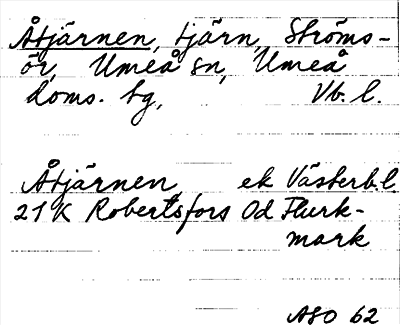 Åtjärnen, tjärn, Ströms-
ör, Umeå sn, Umeå
doms. tg, Vb. l.
Åtjärnen, ek Västerb.l
21 K Robertsfors Od Flurk-
mark
ASO 62